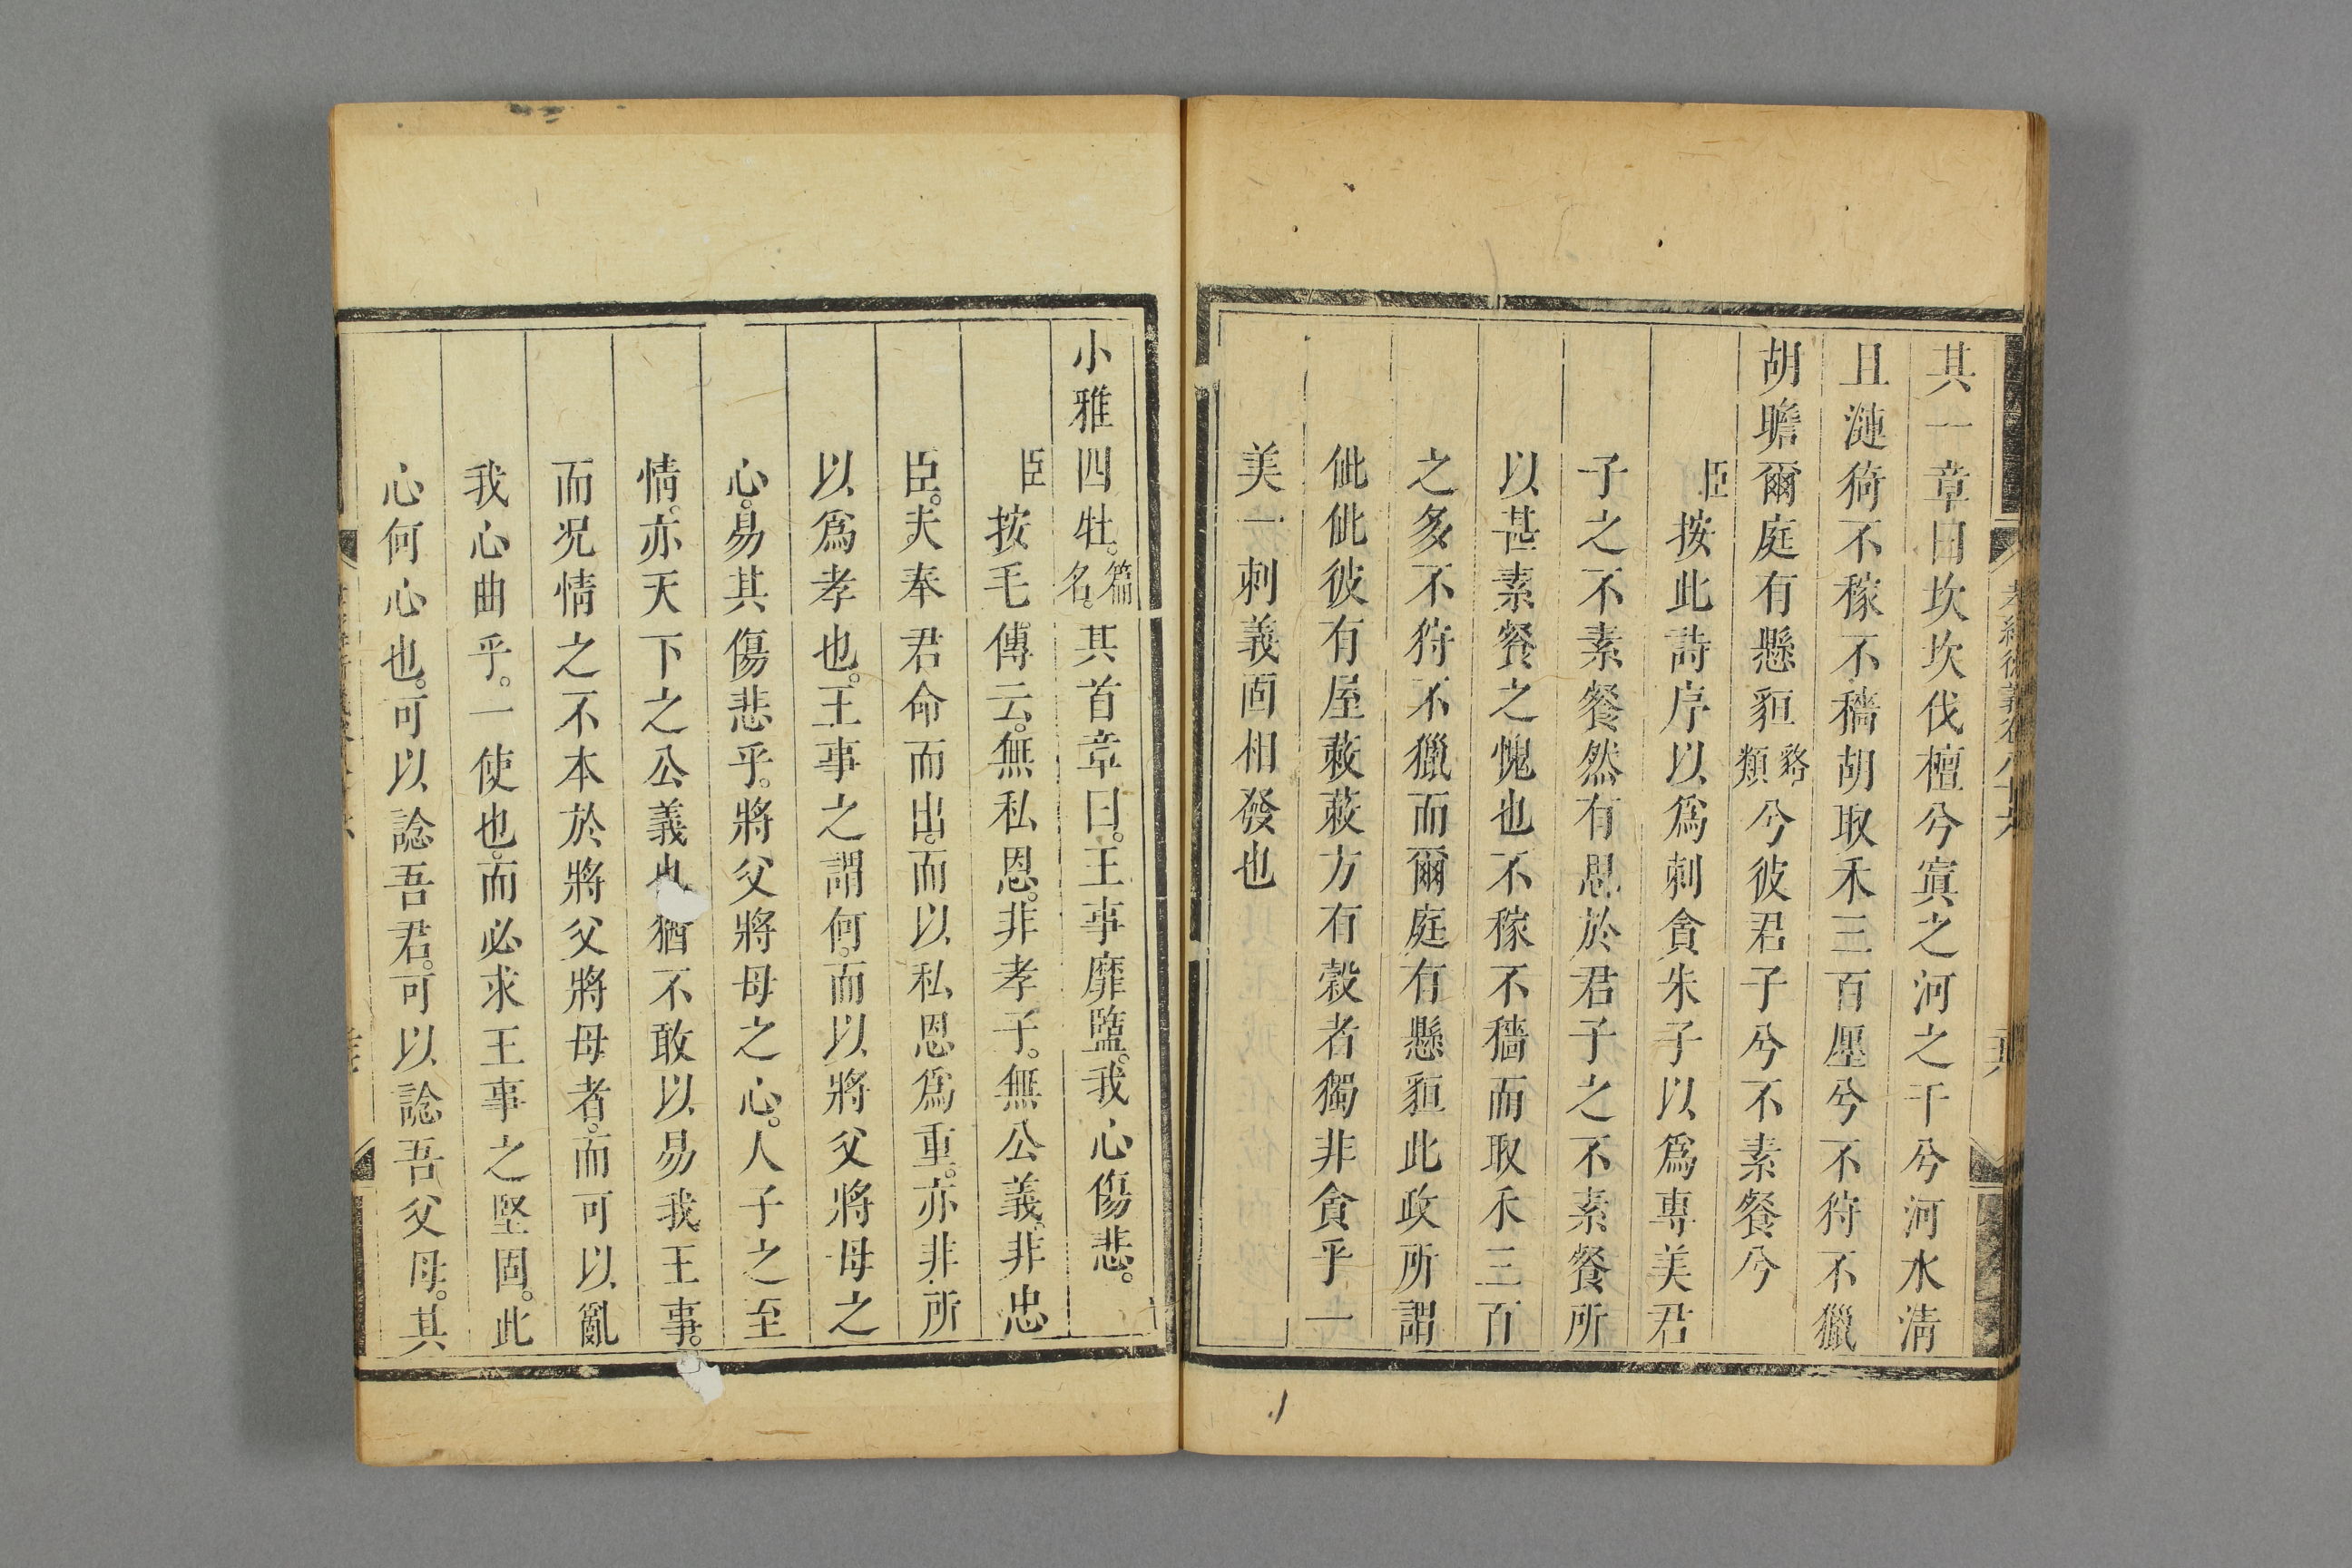 其一章曰坎坎伐檀兮寘之河之干兮河水清
且漣猗不稼不穡胡取禾三百廛兮不狩不獵
胡瞻爾庭有懸貆貉類兮彼君子兮不素餐兮
臣按此詩序以爲刺貪朱子以爲專美君
子之不素餐然有思於君子之不素餐所
以甚素餐之愧也不稼不穡而取禾三百
之多不狩不獵而爾庭有懸貆此政所謂
佌佌彼有屋蔌蔌方有穀者獨非貪乎一
美一刺義固相發也
小雅四牡。篇名。其首章曰。王事靡盬。我心傷悲。
臣按毛傳云。無私恩。非孝子。無公義。非忠
臣。夫奉君命而出。而以私恩爲重。亦非所
以爲孝也。王事之謂何。而以將父將母之
心。易其傷悲乎。將父將母之心。人子之至
情。亦天下之公義也猶不敢以易我王事。
而况情之不本於將父將母者。而可以亂
我心曲乎。一使也。而必求王事之堅固。此
心何心也。可以諗吾君。可以諗吾父母。其